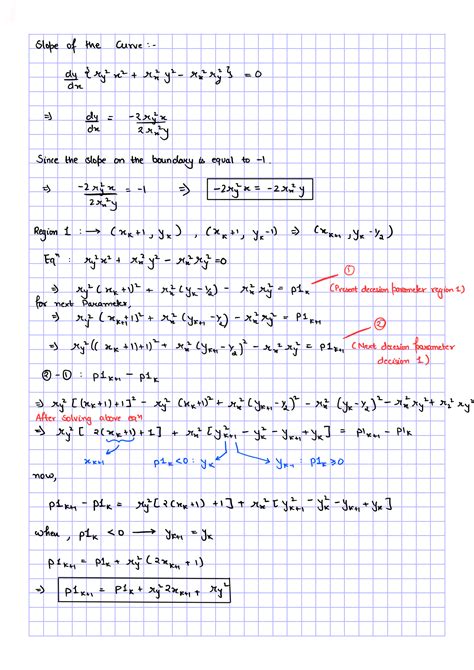 Slope of the Curve :-
dy/dx { ry² x² + rx² y² - rx² ry² } = 0
⇒ dy/dx = -2 ry² x / 2 rx² y
Since the slope on the boundary is equal to -1.
⇒ -2 ry² x / 2 rx² y = -1 ⇒ -2ry² x = -2rx² y
Region 1 : → (xk+1, yk) , (xk+1, yk-1) ⇒ (xk+1, yk-½)
Eqⁿ : ry² x² + rx² y² - rx² ry² = 0
⇒ ry² (xk+1)² + rx² (yk-½)² - rx² ry² = p1k ① (Present decesion parameter region 1)
for next Parameter,
⇒ ry² (xk+1+1)² + rx² (yk+1-½)² - rx² ry² = P1k+1
⇒ ry² ((xk+1)+1)² + rx² (yk+1-½)² - rx² ry² = p1k+1 ② (Next decesion parameter
decision 1)
②-① : p1k+1 - p1k
⇒ ry² [(xk+1)+1]² - ry² (xk+1)² + rx² (yk+1-½)² - rx² (yk-½)² - rx² ry² + rx² ry²
After solving above eqⁿ
⇒ ry² [ 2(xk+1)+1 ] + rx² [ y²k+1 - y²k - yk+1 + yk ] = p1k+1 - p1k
xk+1 p1k<0 : yk yk-1 : p1k≥0
now,
p1k+1 - p1k = ry² [2(xk+1)+1] + rx² [y²k+1 - y²k - yk+1 + yk]
when, p1k < 0 → yk+1 = yk
p1k+1 = p1k + ry² (2xk+1 + 1)
⇒ p1k+1 = p1k + ry² 2xk+1 + ry²